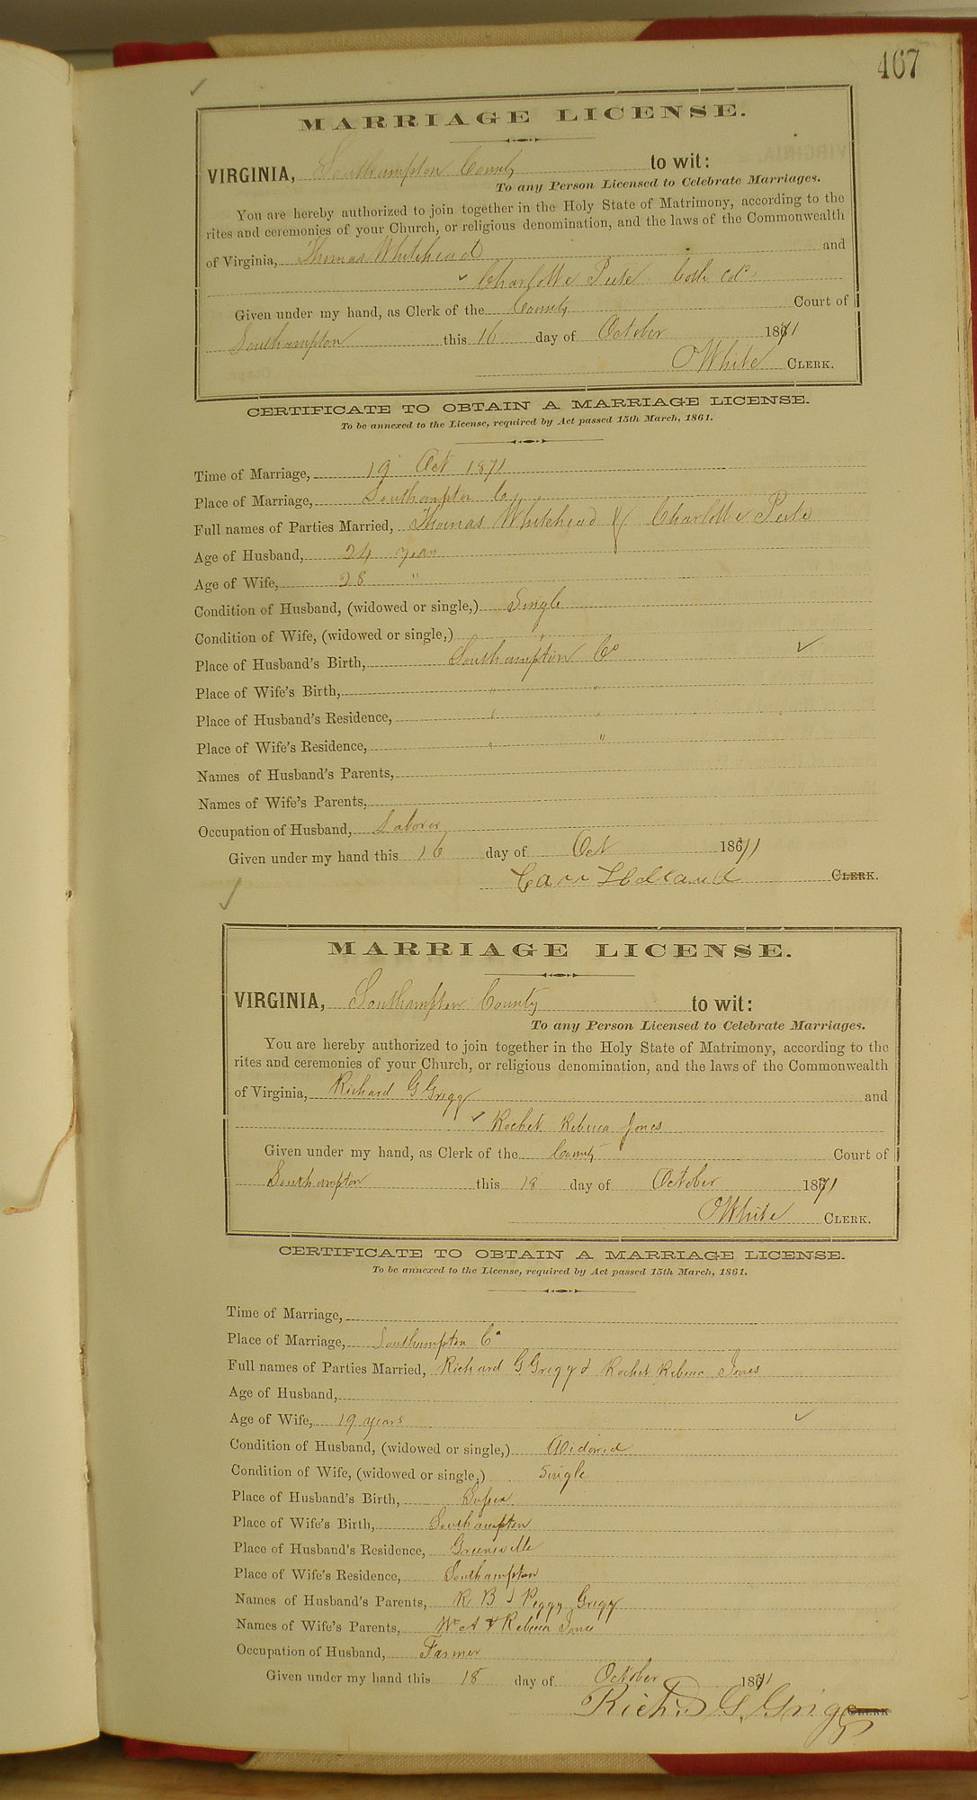 467
MARRIAGE LICENSE.
VIRGINIA, Southampton County to wit:
To any Person Licensed to Celebrate Marriages.
You are hereby authorized to join together in the Holy State of Matrimony, according to the
rites and ceremonies of your Church, or religious denomination, and the laws of the Commonwealth
of Virginia, Thomas Whitehead and
Charlotte Pete both cold
Given under my hand, as Clerk of the County Court of
Southampton this 16 day of October 1871
O White CLERK.
CERTIFICATE TO OBTAIN A MARRIAGE LICENSE.
To be annexed to the License, required by Act passed 15th March, 1861.
Time of Marriage, 19 Oct 1871
Place of Marriage, Southampton Co
Full names of Parties Married, Thomas Whitehead & Charlotte Pete
Age of Husband, 24 years
Age of Wife, 28 "
Condition of Husband, (widowed or single,) Single
Condition of Wife, (widowed or single,) "
Place of Husband's Birth, Southampton Co
Place of Wife's Birth, " "
Place of Husband's Residence, " "
Place of Wife's Residence, " "
Names of Husband's Parents,
Names of Wife's Parents,
Occupation of Husband, Laborer
Given under my hand this 16 day of Oct 1871
Carr Holland CLERK.
MARRIAGE LICENSE.
VIRGINIA, Southampton County to wit:
To any Person Licensed to Celebrate Marriages.
You are hereby authorized to join together in the Holy State of Matrimony, according to the
rites and ceremonies of your Church, or religious denomination, and the laws of the Commonwealth
of Virginia, Richard G Grigg and
Rochet Rebecca Jones
Given under my hand, as Clerk of the County Court of
Southampton this 18 day of October 1871
O White CLERK.
CERTIFICATE TO OBTAIN A MARRIAGE LICENSE.
To be annexed to the License, required by Act passed 15th March, 1861.
Time of Marriage,
Place of Marriage, Southampton Co
Full names of Parties Married, Richard G Grigg & Rochet Rebecca Jones
Age of Husband,
Age of Wife, 19 years
Condition of Husband, (widowed or single,) Widowed
Condition of Wife, (widowed or single,) Single
Place of Husband's Birth, Sussex
Place of Wife's Birth, Southampton
Place of Husband's Residence, Greensville
Place of Wife's Residence, Southampton
Names of Husband's Parents, R B & Peggy Grigg
Names of Wife's Parents, Wm A & Rebecca Jones
Occupation of Husband, Farmer
Given under my hand this 18 day of October 1871
Richd G. Grigg CLERK